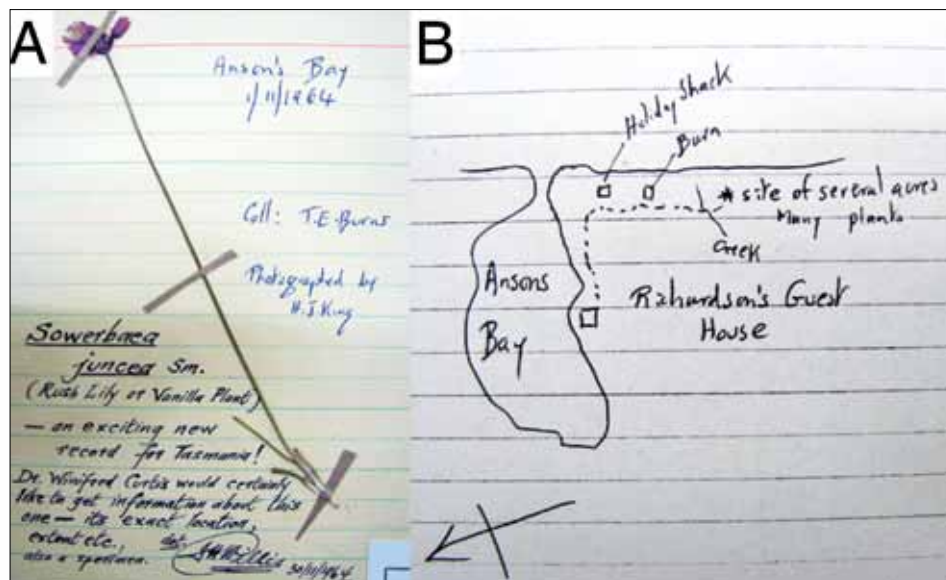 A
Anson's Bay
1/11/1964
Coll: T.E. Burns
Photographed by
H.J. King
Sowerbaea
juncea Sm.
(Rush Lily or Vanilla Plant)
— an exciting new
record for Tasmania!
Dr. Winifred Curtis would certainly
like to get information about this
one — its exact location,
extent etc.,
also a specimen.
det. JHWillis
30/11/1964
B
Holiday Shack
Burn
* site of several acres
Many plants
Creek
Ansons
Bay
Richardson's Guest
House